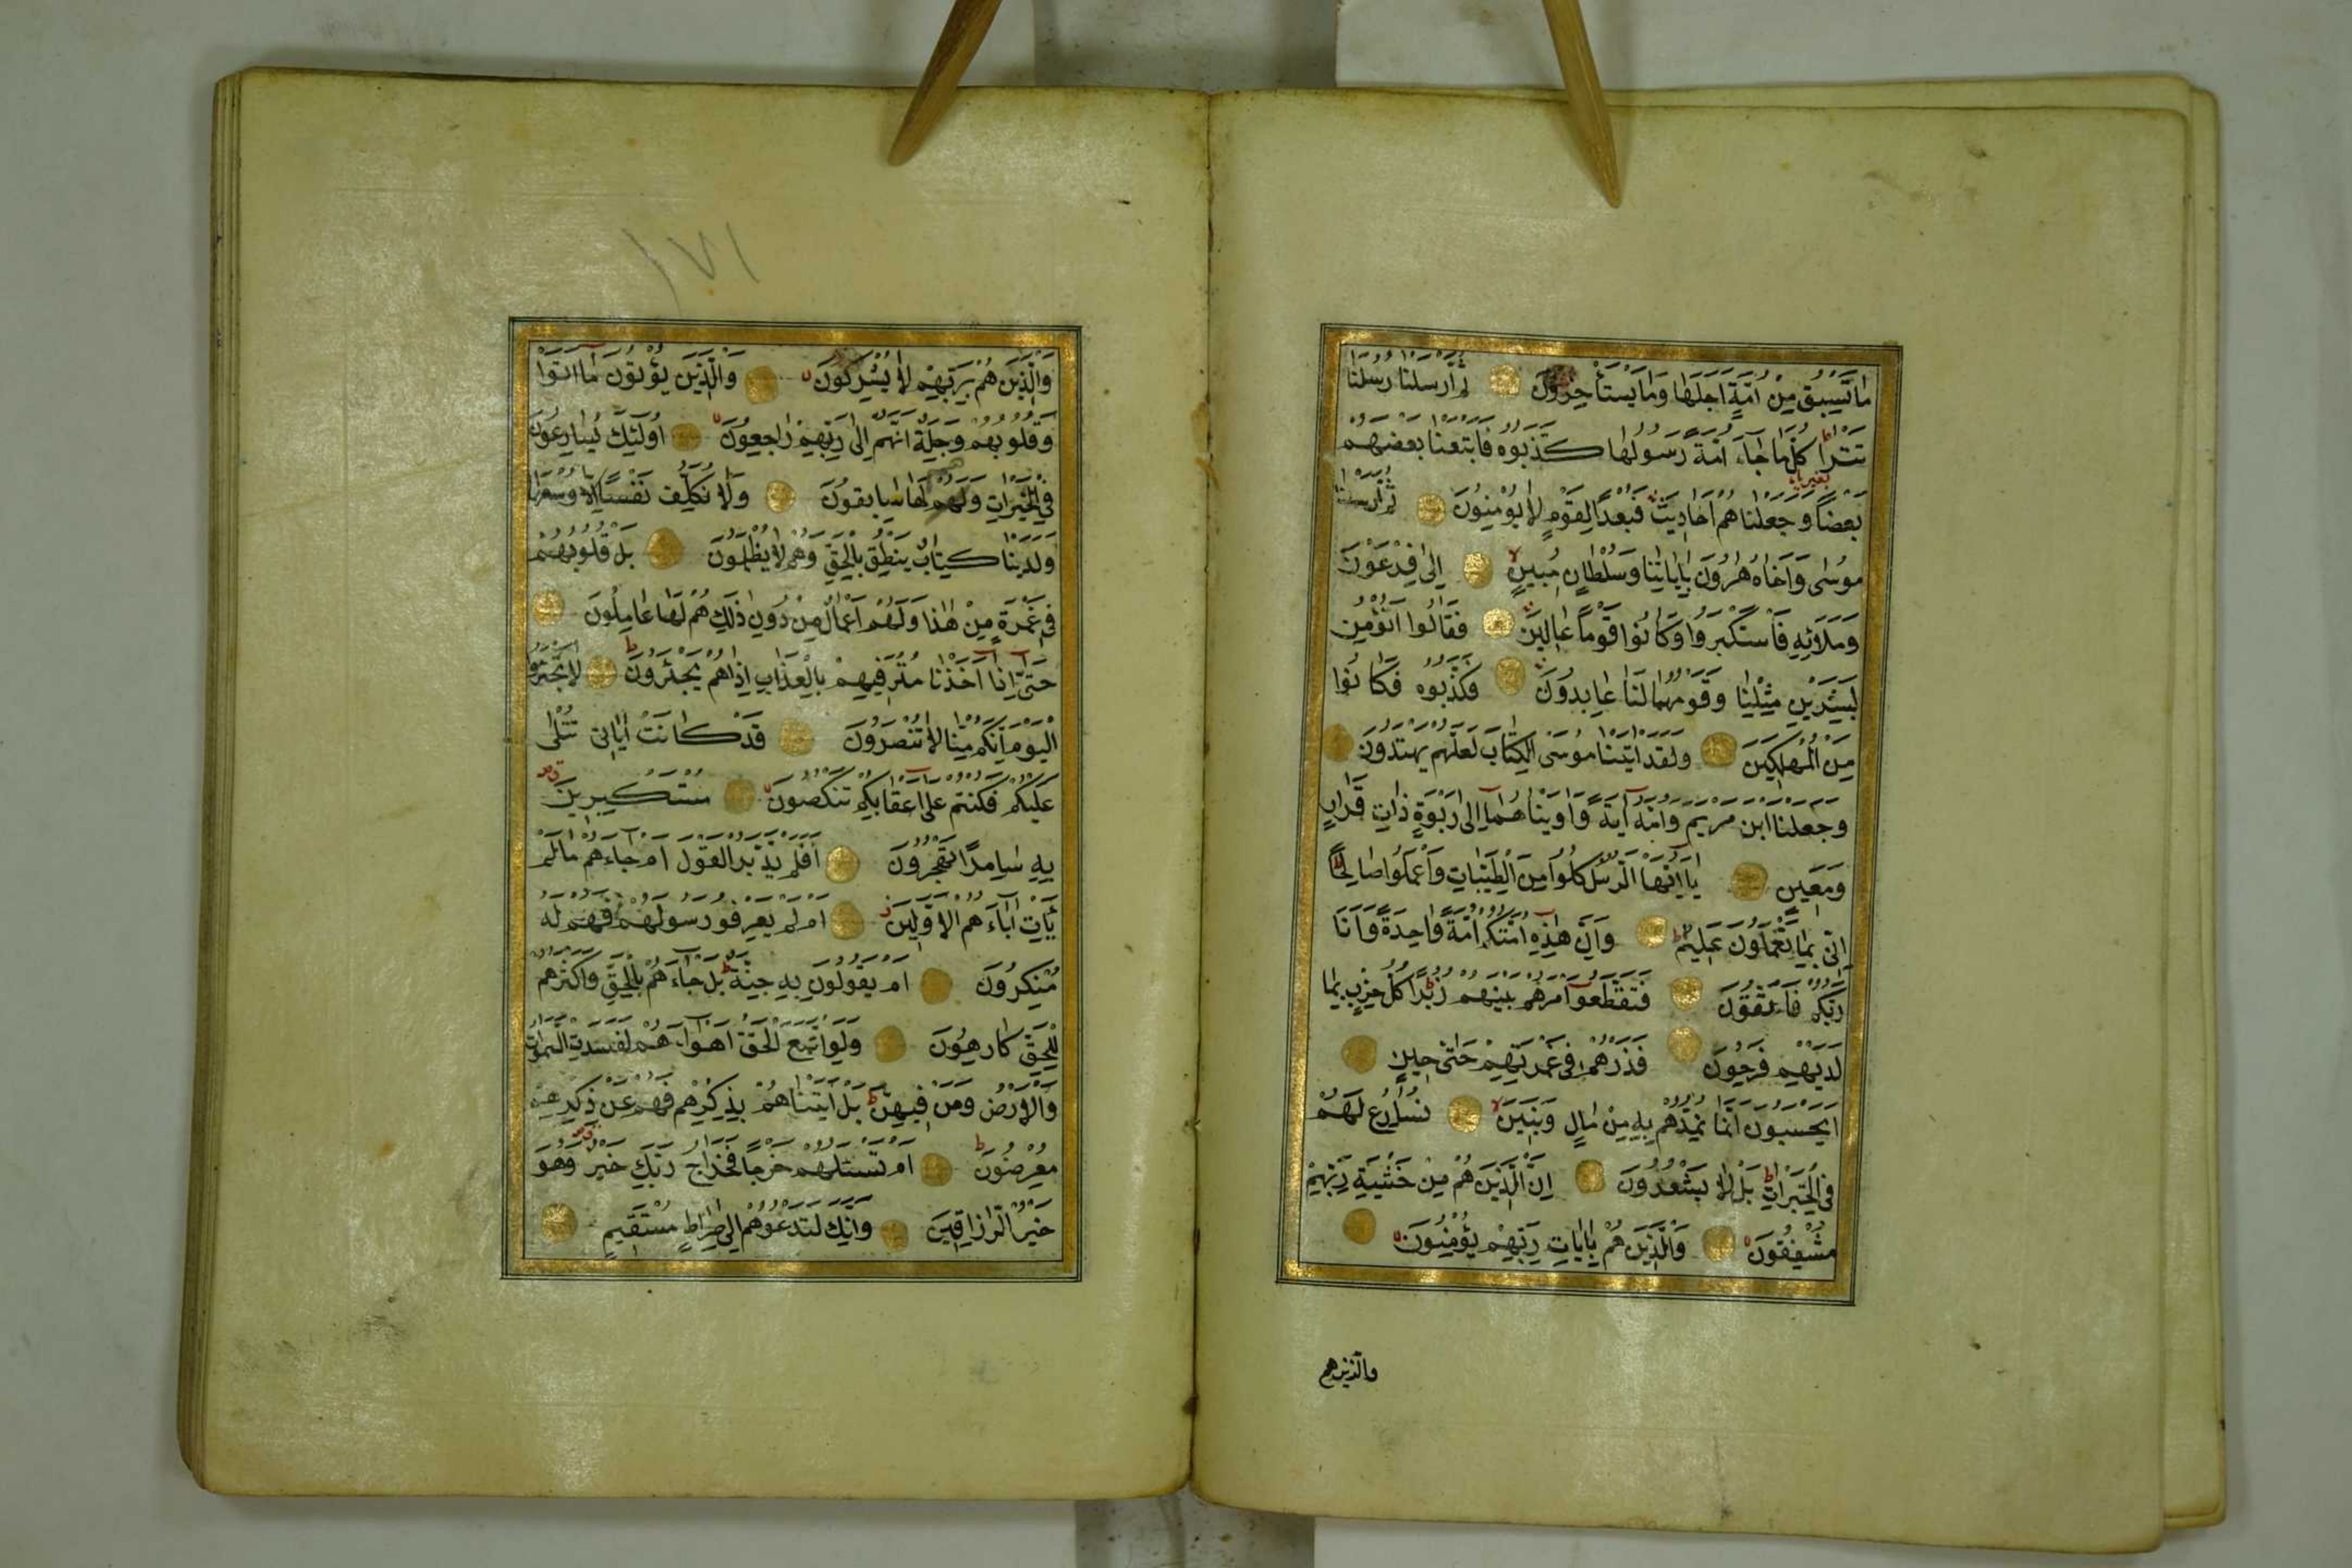 مَا تَسْبِقُ مِنْ اُمَّةٍ اَجَلَهَا وَمَا يَسْتَأْخِرُونَ ثُمَّ اَرْسَلْنَا رُسُلَنَا
تَتْرَا كُلَّمَا جَاءَ اُمَّةً رَسُولُهَا كَذَّبُوهُ فَاَتْبَعْنَا بَعْضَهُمْ
بَعْضًا وَجَعَلْنَاهُمْ اَحَادِيثَ فَبُعْدًا لِقَوْمٍ لَا يُؤْمِنُونَ ثُمَّ اَرْسَلْنَا
مُوسٰى وَاَخَاهُ هٰرُونَ بِاٰيَاتِنَا وَسُلْطَانٍ مُبِينٍ اِلٰى فِرْعَوْنَ
وَمَلَائِهِ فَاسْتَكْبَرُوا وَكَانُوا قَوْمًا عَالِينَ فَقَالُوا اَنُؤْمِنُ
لِبَشَرَيْنِ مِثْلِنَا وَقَوْمُهُمَا لَنَا عَابِدُونَ فَكَذَّبُوهُ فَكَانُوا
مِنَ الْمُهْلَكِينَ وَلَقَدْ اٰتَيْنَا مُوسَى الْكِتَابَ لَعَلَّهُمْ يَهْتَدُونَ
وَجَعَلْنَا ابْنَ مَرْيَمَ وَاُمَّهُ اٰيَةً وَاٰوَيْنَاهُمَا اِلٰى رَبْوَةٍ ذَاتِ قَرَارٍ
وَمَعِينٍ يَا اَيُّهَا الرُّسُلُ كُلُوا مِنَ الطَّيِّبَاتِ وَاعْمَلُوا صَالِحًا
اِنِّى بِمَا تَعْمَلُونَ عَلِيمٌ وَاِنَّ هٰذِهِ اُمَّتُكُمْ اُمَّةً وَاحِدَةً وَاَنَا
رَبُّكُمْ فَاتَّقُونَ فَتَقَطَّعُوا اَمْرَهُمْ بَيْنَهُمْ زُبُرًا كُلُّ حِزْبٍ بِمَا
لَدَيْهِمْ فَرِحُونَ فَذَرْهُمْ فِى غَمْرَتِهِمْ حَتّٰى حِينٍ
اَيَحْسَبُونَ اَنَّمَا نُمِدُّهُمْ بِهِ مِنْ مَالٍ وَبَنِينَ نُسَارِعُ لَهُمْ
فِى الْخَيْرَاتِ بَلْ لَا يَشْعُرُونَ اِنَّ الَّذِينَ هُمْ مِنْ خَشْيَةِ رَبِّهِمْ
مُشْفِقُونَ وَالَّذِينَ هُمْ بِاٰيَاتِ رَبِّهِمْ يُؤْمِنُونَ
والذين هم
١٧١
وَالَّذِينَ هُمْ بِرَبِّهِمْ لَا يُشْرِكُونَ وَالَّذِينَ يُؤْتُونَ مَا اٰتَوْا
وَقُلُوبُهُمْ وَجِلَةٌ اَنَّهُمْ اِلٰى رَبِّهِمْ رَاجِعُونَ اُولٰئِكَ يُسَارِعُونَ
فِى الْخَيْرَاتِ وَهُمْ لَهَا سَابِقُونَ وَلَا نُكَلِّفُ نَفْسًا اِلَّا وُسْعَهَا
وَلَدَيْنَا كِتَابٌ يَنْطِقُ بِالْحَقِّ وَهُمْ لَا يُظْلَمُونَ بَلْ قُلُوبُهُمْ
فِى غَمْرَةٍ مِنْ هٰذَا وَلَهُمْ اَعْمَالٌ مِنْ دُونِ ذٰلِكَ هُمْ لَهَا عَامِلُونَ
حَتّٰى اِذَا اَخَذْنَا مُتْرَفِيهِمْ بِالْعَذَابِ اِذَا هُمْ يَجْئَرُونَ لَا تَجْئَرُوا
الْيَوْمَ اِنَّكُمْ مِنَّا لَا تُنْصَرُونَ قَدْ كَانَتْ اٰيَاتِى تُتْلٰى
عَلَيْكُمْ فَكُنْتُمْ عَلٰى اَعْقَابِكُمْ تَنْكِصُونَ مُسْتَكْبِرِينَ
بِهِ سَامِرًا تَهْجُرُونَ اَفَلَمْ يَدَّبَّرُوا الْقَوْلَ اَمْ جَاءَهُمْ مَا لَمْ
يَأْتِ اٰبَاءَهُمُ الْاَوَّلِينَ اَمْ لَمْ يَعْرِفُوا رَسُولَهُمْ فَهُمْ لَهُ
مُنْكِرُونَ اَمْ يَقُولُونَ بِهِ جِنَّةٌ بَلْ جَاءَهُمْ بِالْحَقِّ وَاَكْثَرُهُمْ
لِلْحَقِّ كَارِهُونَ وَلَوِ اتَّبَعَ الْحَقُّ اَهْوَاءَهُمْ لَفَسَدَتِ السَّمٰوَاتُ
وَالْاَرْضُ وَمَنْ فِيهِنَّ بَلْ اَتَيْنَاهُمْ بِذِكْرِهِمْ فَهُمْ عَنْ ذِكْرِهِمْ
مُعْرِضُونَ اَمْ تَسْئَلُهُمْ خَرْجًا فَخَرَاجُ رَبِّكَ خَيْرٌ وَهُوَ
خَيْرُ الرَّازِقِينَ وَاِنَّكَ لَتَدْعُوهُمْ اِلٰى صِرَاطٍ مُسْتَقِيمٍ